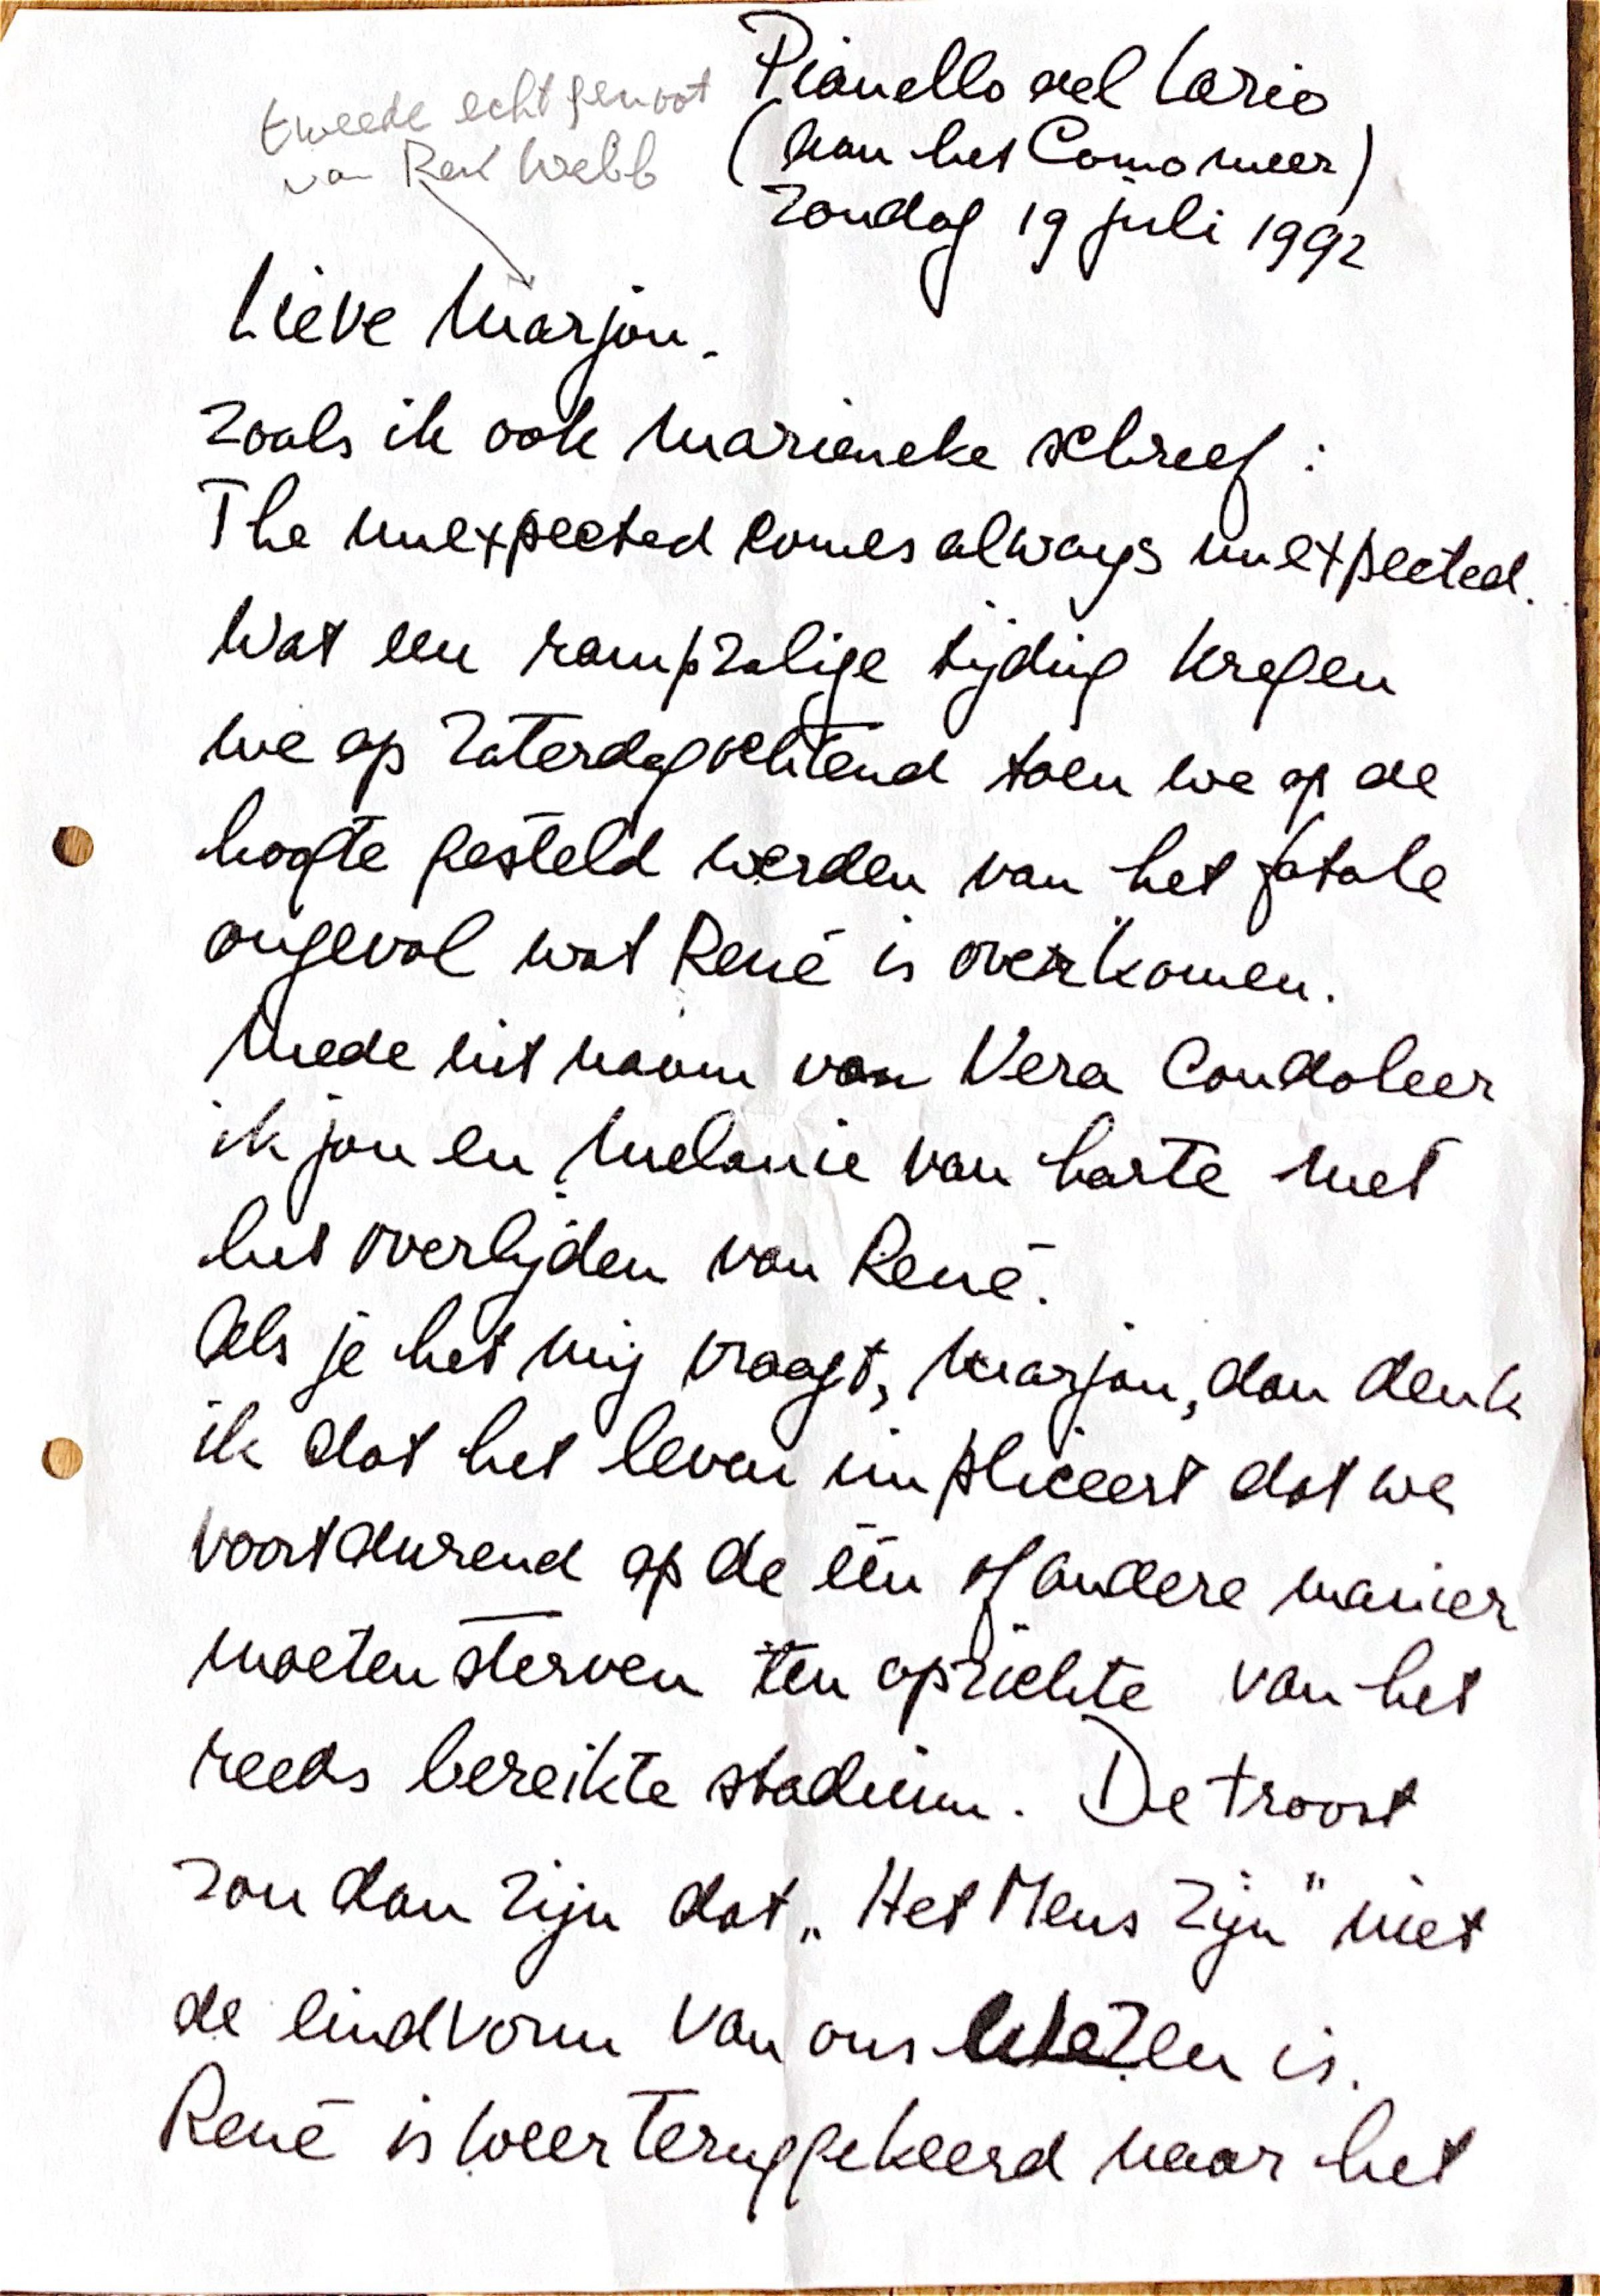 Pianello del Lario
(aan het Como meer)
zondag 19 juli 1992
tweede echtgenoot
van René Webb
Lieve Marjon.
Zoals ik ook Marieneke schreef :
The unexpected comes always unexpected.
Wat een rampzalige tijding kregen
we op zaterdagochtend toen we op de
hoogte gesteld werden van het fatale
ongeval wat René is overkomen.
Mede uit naam van Vera Condoleer
ik jou en Melanie van harte met
het overlijden van René.
Als je het mij vraagt, Marjon, dan denk
ik dat het leven impliceert dat we
voortdurend op de één of andere manier
moeten sterven ten opzichte van het
reeds bereikte stadium. De troost
zou dan zijn dat „Het Mens Zijn" niet
de eindvorm van ons wezen is.
René is weer teruggekeerd naar het